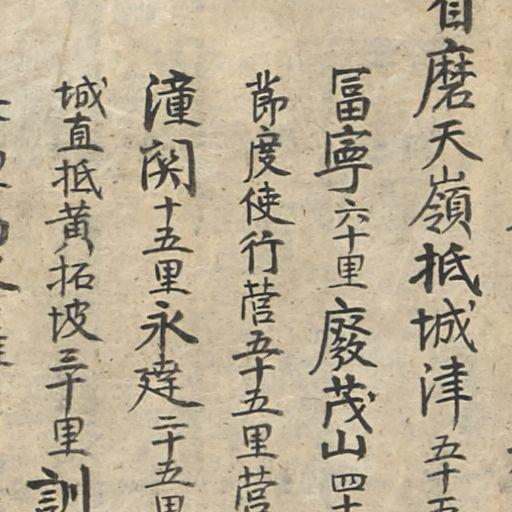 自磨天嶺抵城津五十五
冨寧六十里廢茂山四十
節度使行营五十五里营
潼関十五里永建二十五里
城直抵黄拓坡三十里訓